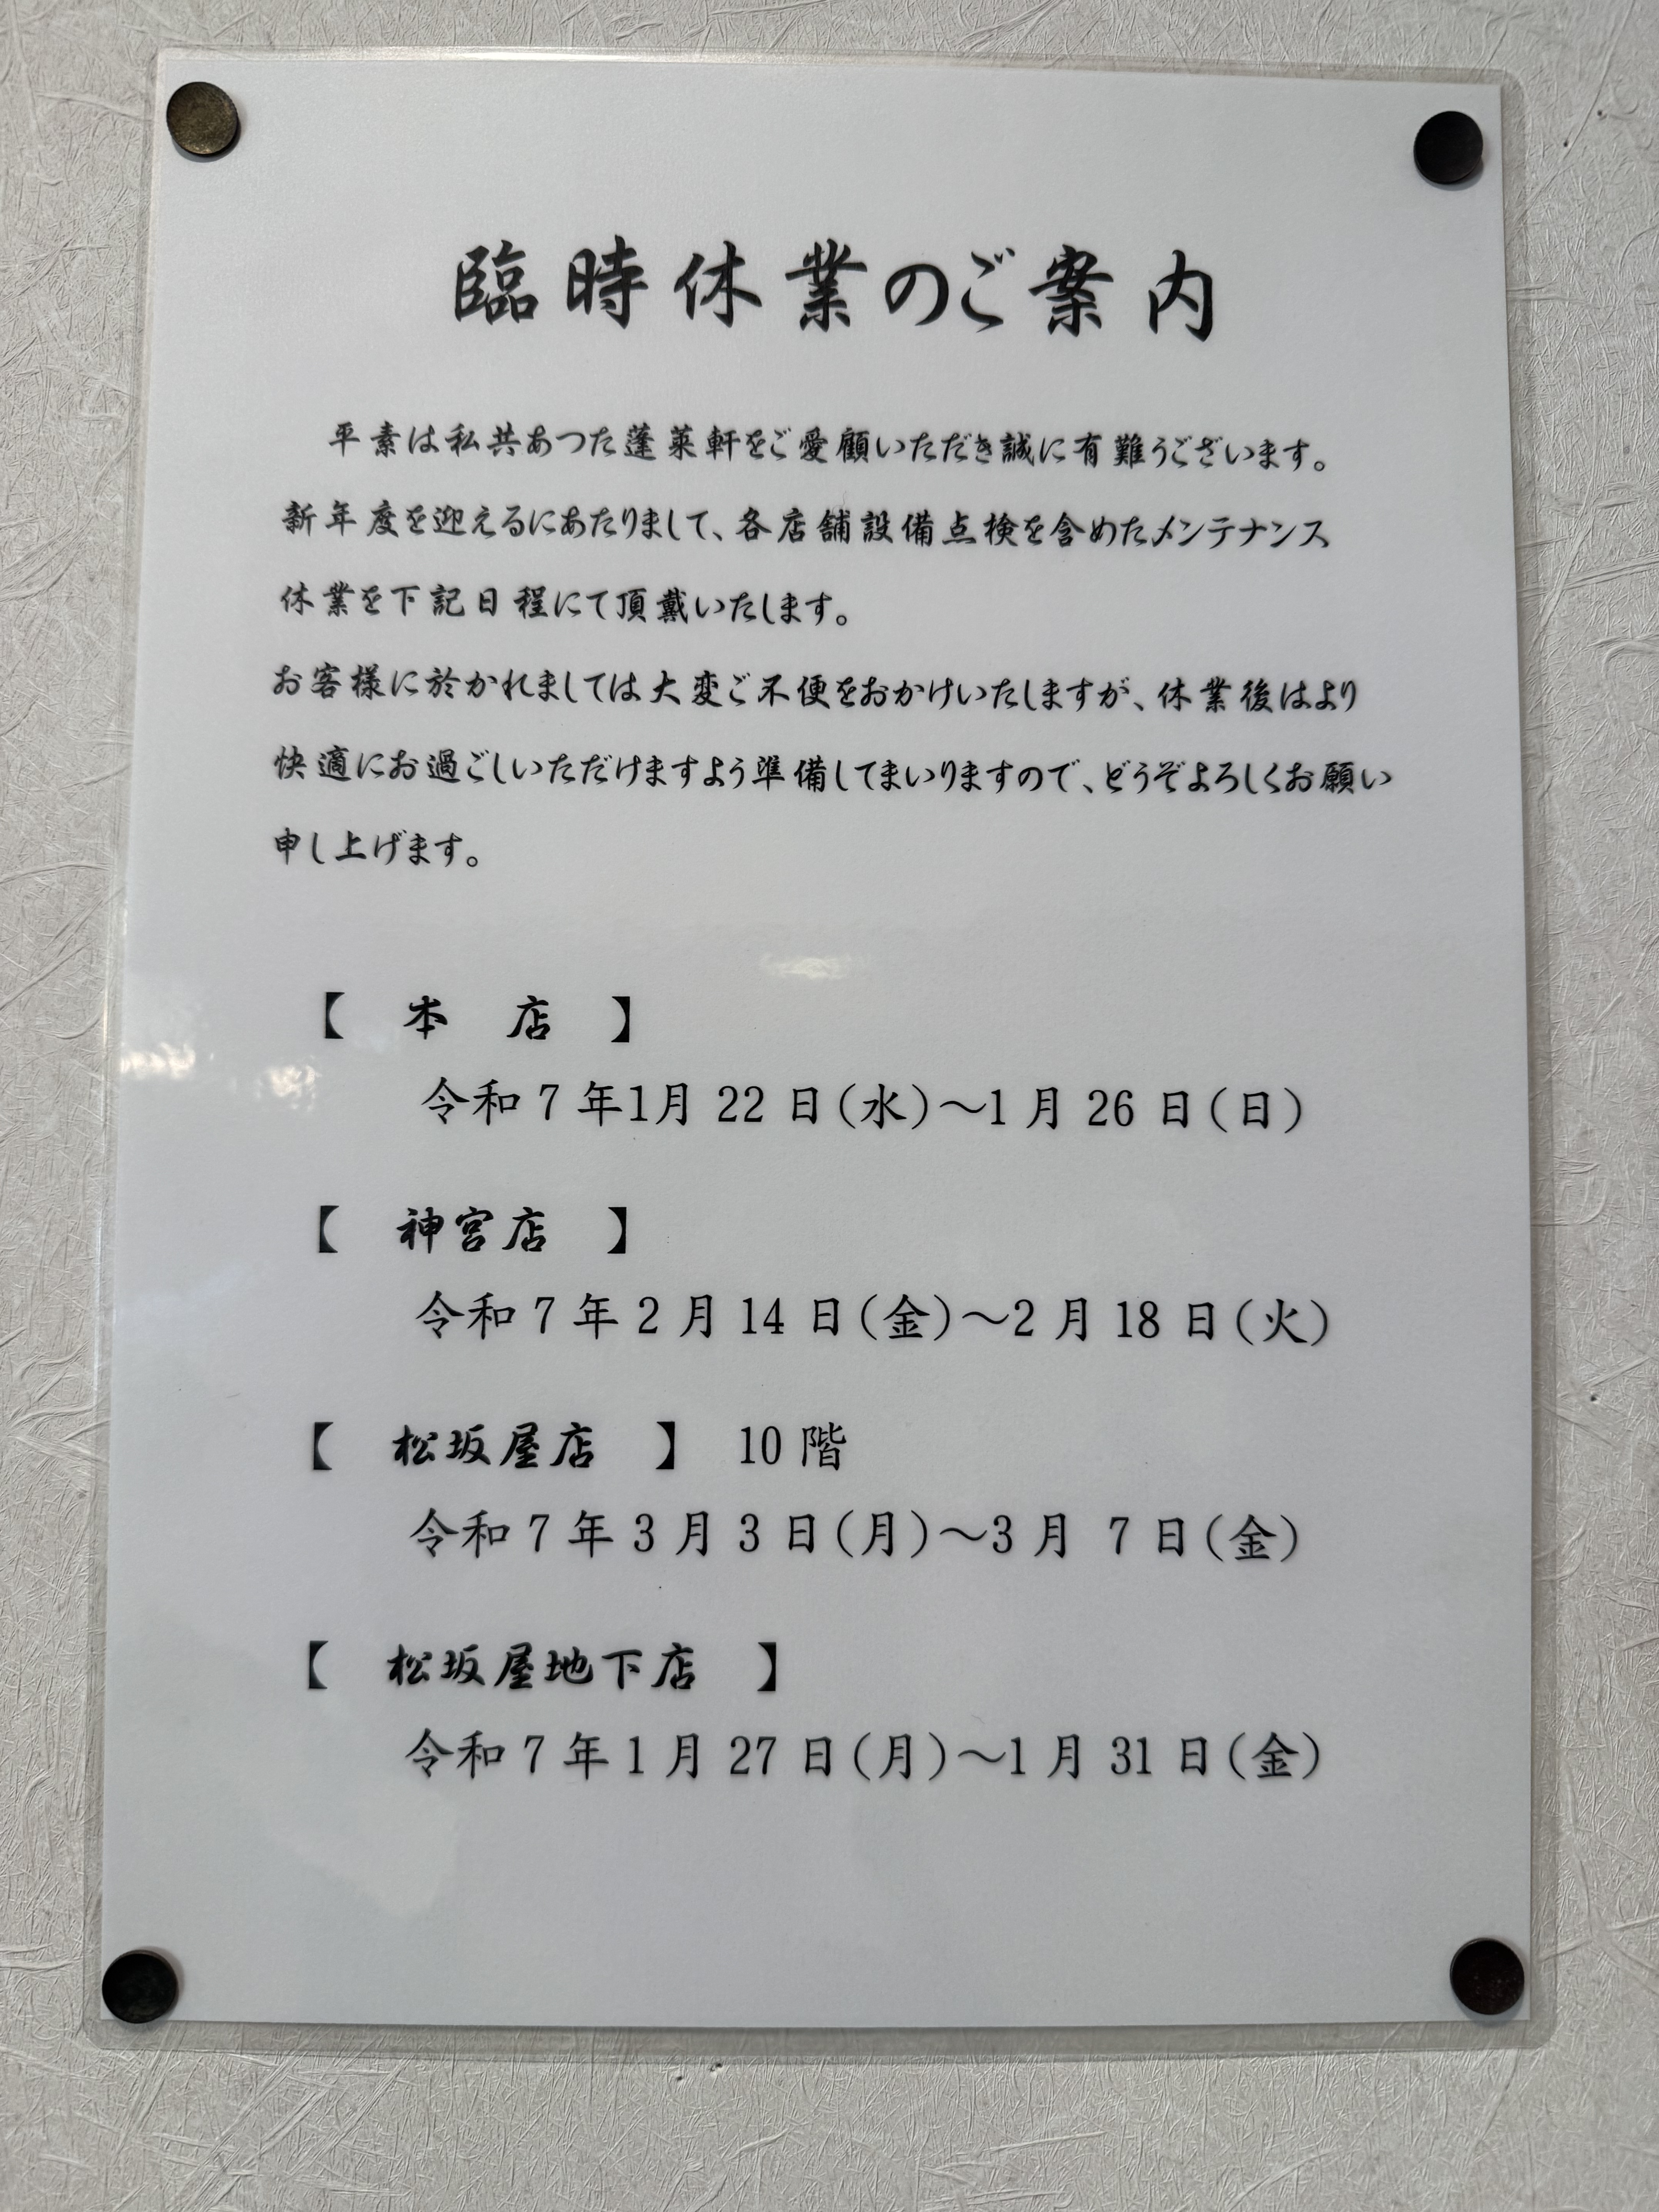 臨時休業のご案内
平素は私共あつた蓬莱軒をご愛顧いただき誠に有難うございます。
新年度を迎えるにあたりまして、各店舗設備点検を含めたメンテナンス
休業を下記日程にて頂戴いたします。
お客様に於かれましては大変ご不便をおかけいたしますが、休業後はより
快適にお過ごしいただけますよう準備してまいりますので、どうぞよろしくお願い
申し上げます。
【 本 店 】
令和7年1月22日(水)～1月26日(日)
【 神宮店 】
令和7年2月14日(金)～2月18日(火)
【 松坂屋店 】 10階
令和7年3月3日(月)～3月 7日(金)
【 松坂屋地下店 】
令和7年1月27日(月)～1月31日(金)